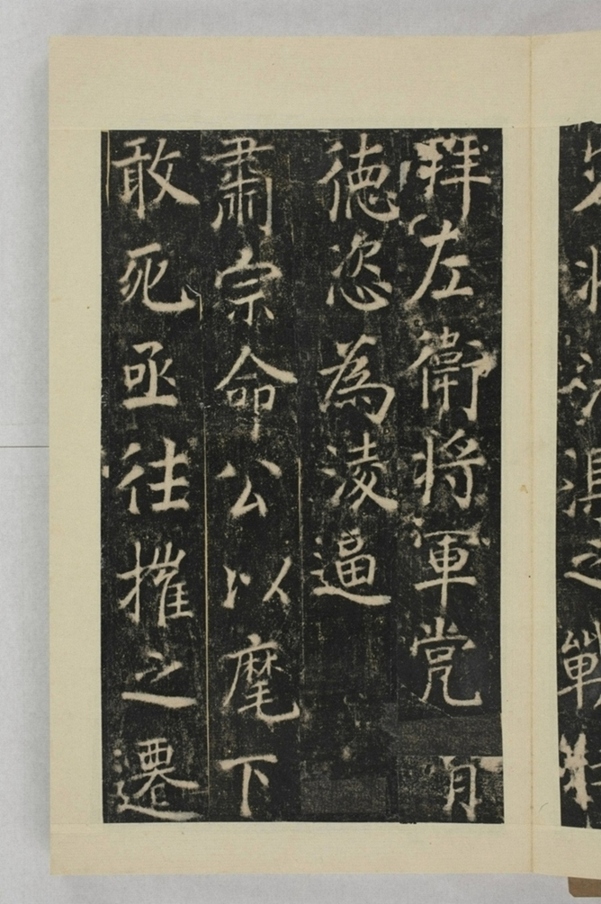 拜左衛将軍党
德恣為淩逼
肅宗命公以麾下
敢死亟往摧之遷